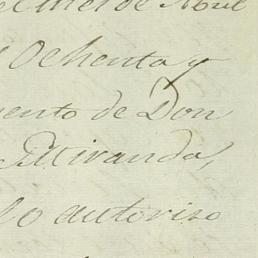 el mes de Abril
Ochenta y
ento de Don
Miranda,
lo autoriso